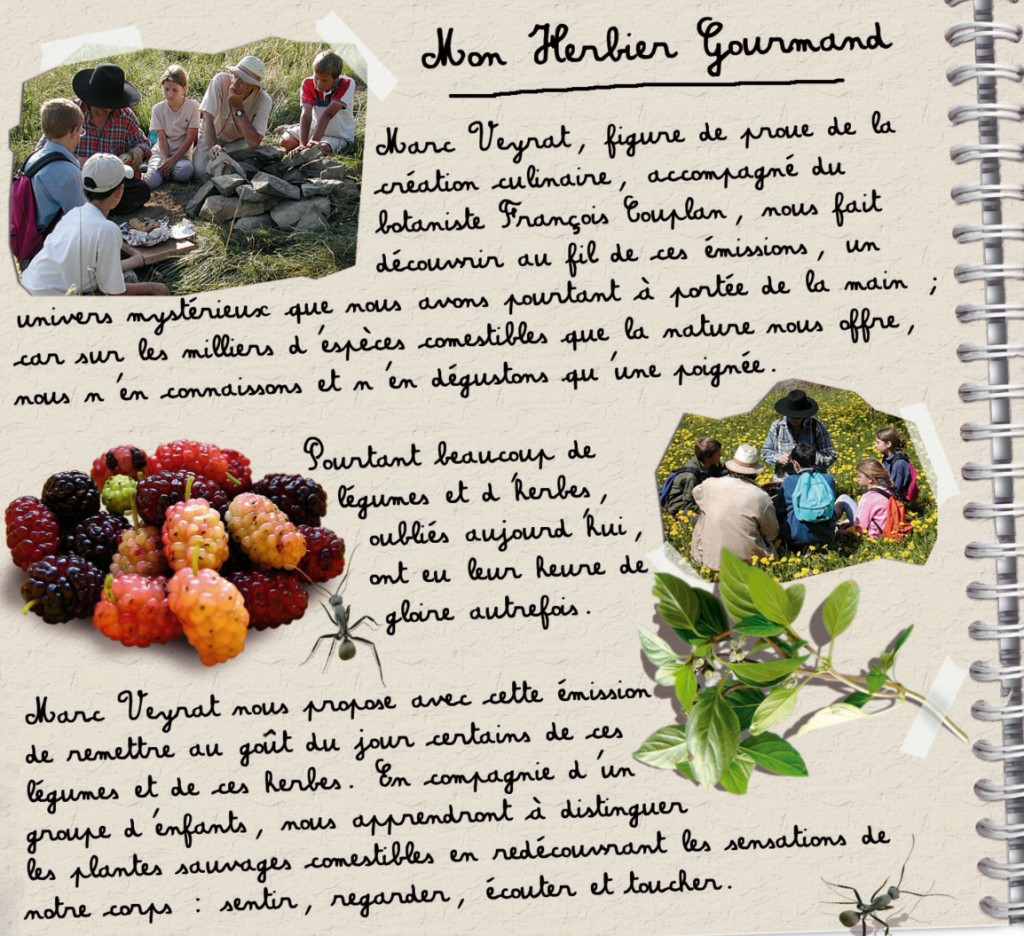 Mon Herbier Gourmand
Marc Veyrat, figure de proue de la
création culinaire, accompagné du
botaniste François Couplan, nous fait
découvrir au fil de ces émissions, un
univers mystérieux que nous avons pourtant à portée de la main ;
car sur les milliers d'éspèces comestibles que la nature nous offre,
nous n'én connaissons et n'én dégustons qu'une poignée.
Pourtant beaucoup de
légumes et d'herbes,
oubliés aujourd'hui,
ont eu leur heure de
gloire autrefois.
Marc Veyrat nous propose avec cette émission
de remettre au goût du jour certains de ces
légumes et de ces herbes. En compagnie d'un
groupe d'énfants, nous apprendront à distinguer
les plantes sauvages comestibles en redécouvrant les sensations de
notre corps : sentir, regarder, écouter et toucher.